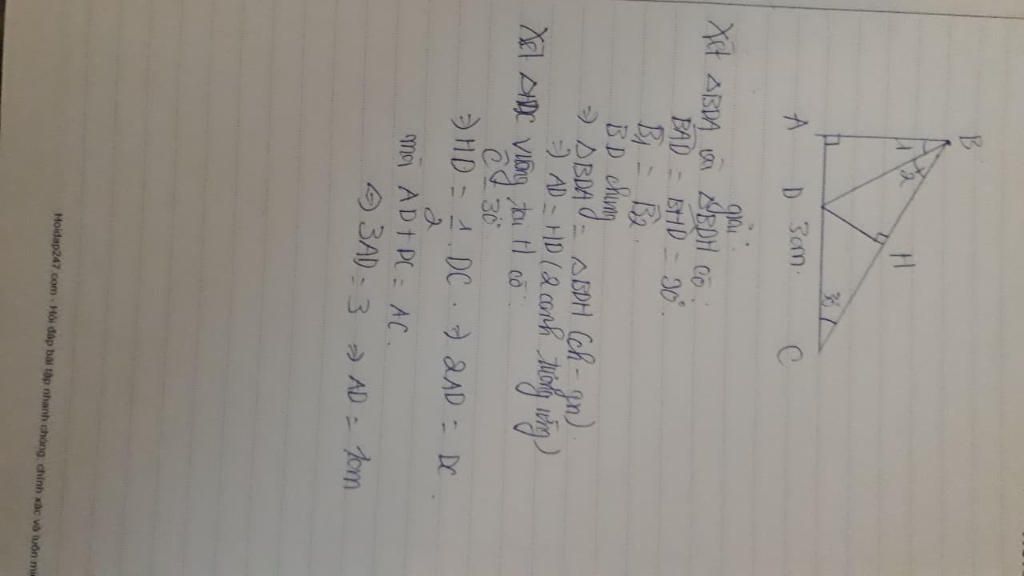 B
1
2
H
A
D
3cm.
30°
C
giải:
Xét △BDA và △BDH có:
BAD = BHD = 90°
B1 = B2
BD chung
⇒ △BDA = △BDH (ch - gn)
⇒ AD = HD (2 cạnh tương ứng)
Xét △HDC vuông tại H có:
C = 30°
⇒ HD = 1/2 DC. ⇒ 2AD = DC.
mà AD + DC = AC.
⇔ 3AD = 3 ⇒ AD = 1cm
Hoidap247.com - Hỏi đáp bài tập nhanh chóng, chính xác và luôn